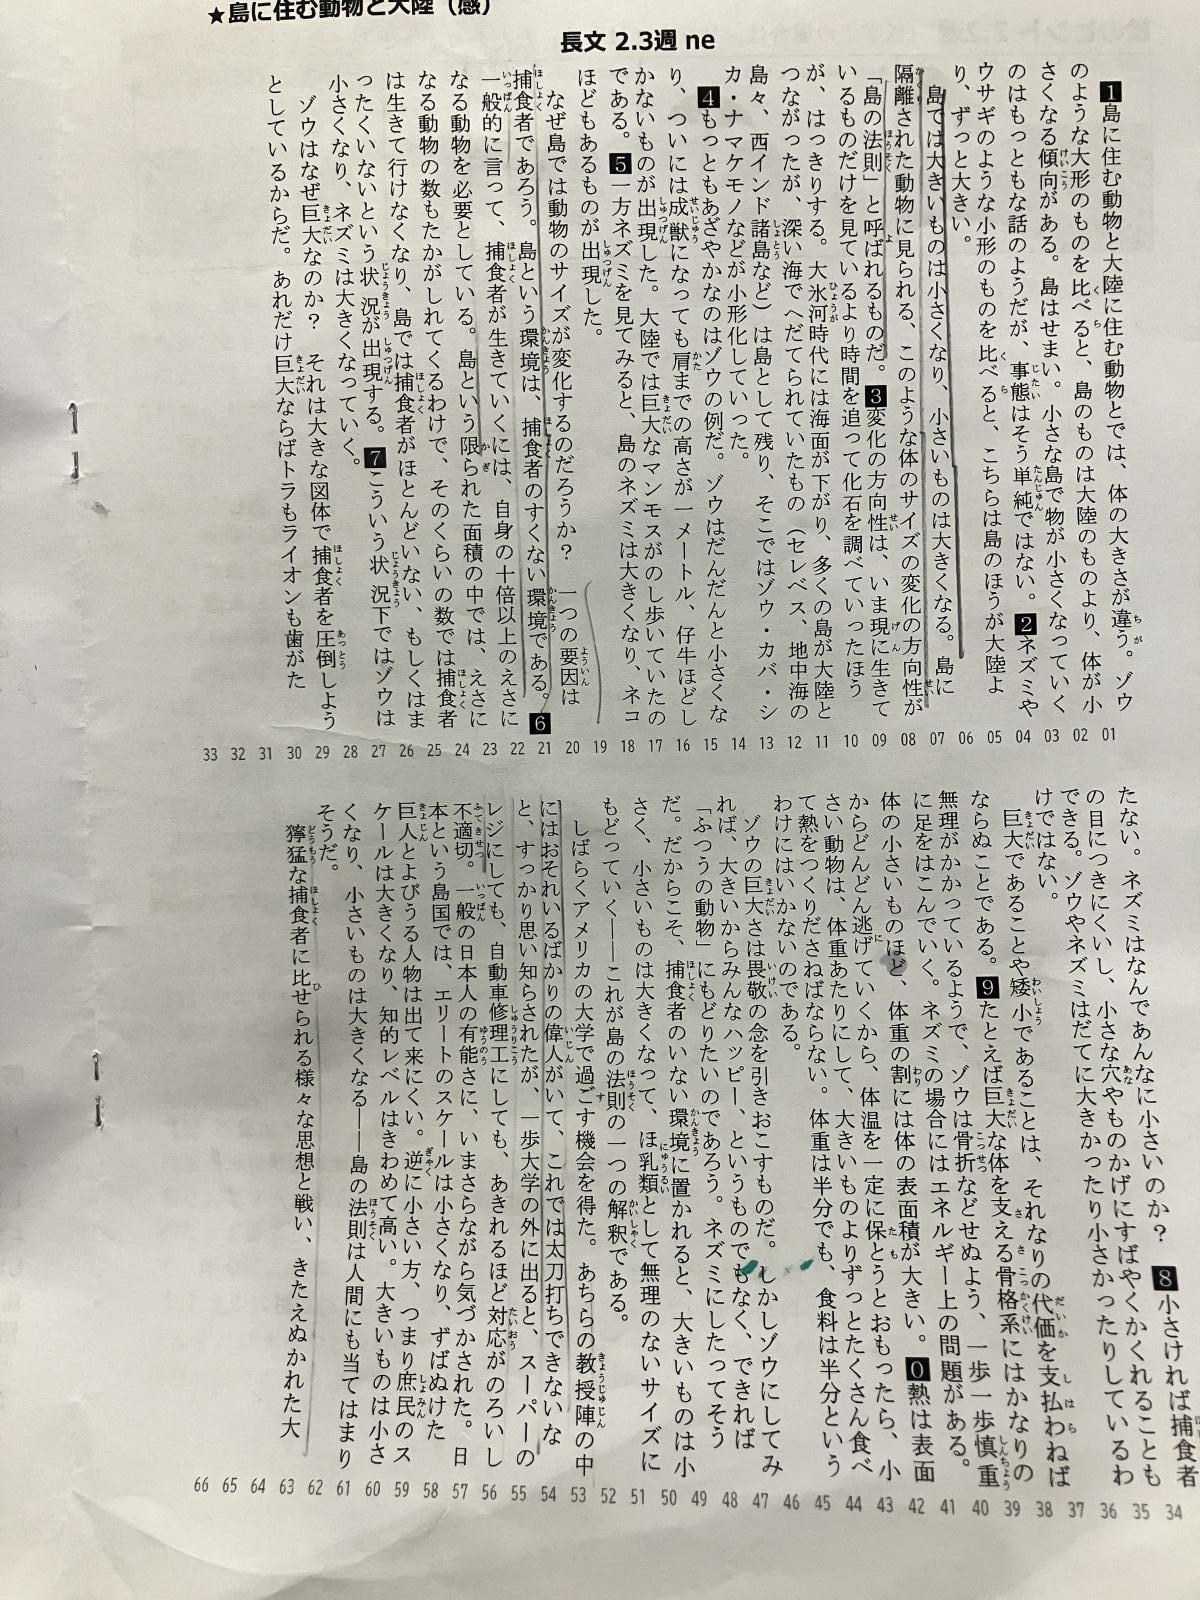 ★島に住む動物と大陸（感）
長文 2.3週 ne
1島に住む動物と大陸に住む動物とでは、体の大きさが違う。ゾウ
のような大形のものを比べると、島のものは大陸のものより、体が小
さくなる傾向がある。島はせまい。小さな島で物が小さくなっていく
のはもっともな話のようだが、事態はそう単純ではない。2ネズミや
ウサギのような小形のものを比べると、こちらは島のほうが大陸よ
り、ずっと大きい。
島では大きいものは小さくなり、小さいものは大きくなる。島に
隔離された動物に見られる、このような体のサイズの変化の方向性が
「島の法則」と呼ばれるものだ。3変化の方向性は、いま現に生きて
いるものだけを見ているより時間を追って化石を調べていったほう
が、はっきりする。大氷河時代には海面が下がり、多くの島が大陸と
つながったが、深い海でへだてられていたもの（セレベス、地中海の
島々、西インド諸島など）は島として残り、そこではゾウ・カバ・シ
カ・ナマケモノなどが小形化していった。
4もっともあざやかなのはゾウの例だ。ゾウはだんだんと小さくな
り、ついには成獣になっても肩までの高さが一メートル、仔牛ほどし
かないものが出現した。大陸では巨大なマンモスがのし歩いていたの
である。5一方ネズミを見てみると、島のネズミは大きくなり、ネコ
ほどもあるものが出現した。
なぜ島では動物のサイズが変化するのだろうか？　一つの要因は
捕食者であろう。島という環境は、捕食者のすくない環境である。6
一般的に言って、捕食者が生きていくには、自身の十倍以上のえさに
なる動物を必要としている。島という限られた面積の中では、えさに
なる動物の数もたかがしれてくるわけで、そのくらいの数では捕食者
は生きて行けなくなり、島では捕食者がほとんどいない、もしくはま
ったくいないという状況が出現する。7こういう状況下ではゾウは
小さくなり、ネズミは大きくなっていく。
ゾウはなぜ巨大なのか？　それは大きな図体で捕食者を圧倒しよう
としているからだ。あれだけ巨大ならばトラもライオンも歯がた
01 02 03 04 05 06 07 08 09 10 11 12 13 14 15 16 17 18 19 20 21 22 23 24 25 26 27 28 29 30 31 32 33
たない。ネズミはなんであんなに小さいのか？　8小さければ捕食者
の目につきにくいし、小さな穴やものかげにすばやくかくれることも
できる。ゾウやネズミはだてに大きかったり小さかったりしているわ
けではない。
巨大であることや矮小であることは、それなりの代価を支払わねば
ならぬことである。9たとえば巨大な体を支える骨格系にはかなりの
無理がかかっているようで、ゾウは骨折などせぬよう、一歩一歩慎重
に足をはこんでいく。ネズミの場合にはエネルギー上の問題がある。
体の小さいものほど、体重の割には体の表面積が大きい。0熱は表面
からどんどん逃げていくから、体温を一定に保とうとおもったら、小
さい動物は、体重あたりにして、大きいものよりずっとたくさん食べ
て熱をつくりださねばならない。体重は半分でも、食料は半分という
わけにはいかないのである。
ゾウの巨大さは畏敬の念を引きおこすものだ。しかしゾウにしてみ
れば、大きいからみんなハッピー、というものでもなく、できれば
「ふつうの動物」にもどりたいのであろう。ネズミにしたってそう
だ。だからこそ、捕食者のいない環境に置かれると、大きいものは小
さく、小さいものは大きくなって、ほ乳類として無理のないサイズに
もどっていく――これが島の法則の一つの解釈である。
しばらくアメリカの大学で過ごす機会を得た。あちらの教授陣の中
にはおそれいるばかりの偉人がいて、これでは太刀打ちできないな
と、すっかり思い知らされたが、一歩大学の外に出ると、スーパーの
レジにしても、自動車修理工にしても、あきれるほど対応がのろいし
不適切。一般の日本人の有能さに、いまさらながら気づかされた。日
本という島国では、エリートのスケールは小さくなり、ずばぬけた
巨人とよびうる人物は出て来にくい。逆に小さい方、つまり庶民のス
ケールは大きくなり、知的レベルはきわめて高い。大きいものは小さ
くなり、小さいものは大きくなる――島の法則は人間にも当てはまり
そうだ。
獰猛な捕食者に比せられる様々な思想と戦い、きたえぬかれた大
34 35 36 37 38 39 40 41 42 43 44 45 46 47 48 49 50 51 52 53 54 55 56 57 58 59 60 61 62 63 64 65 66